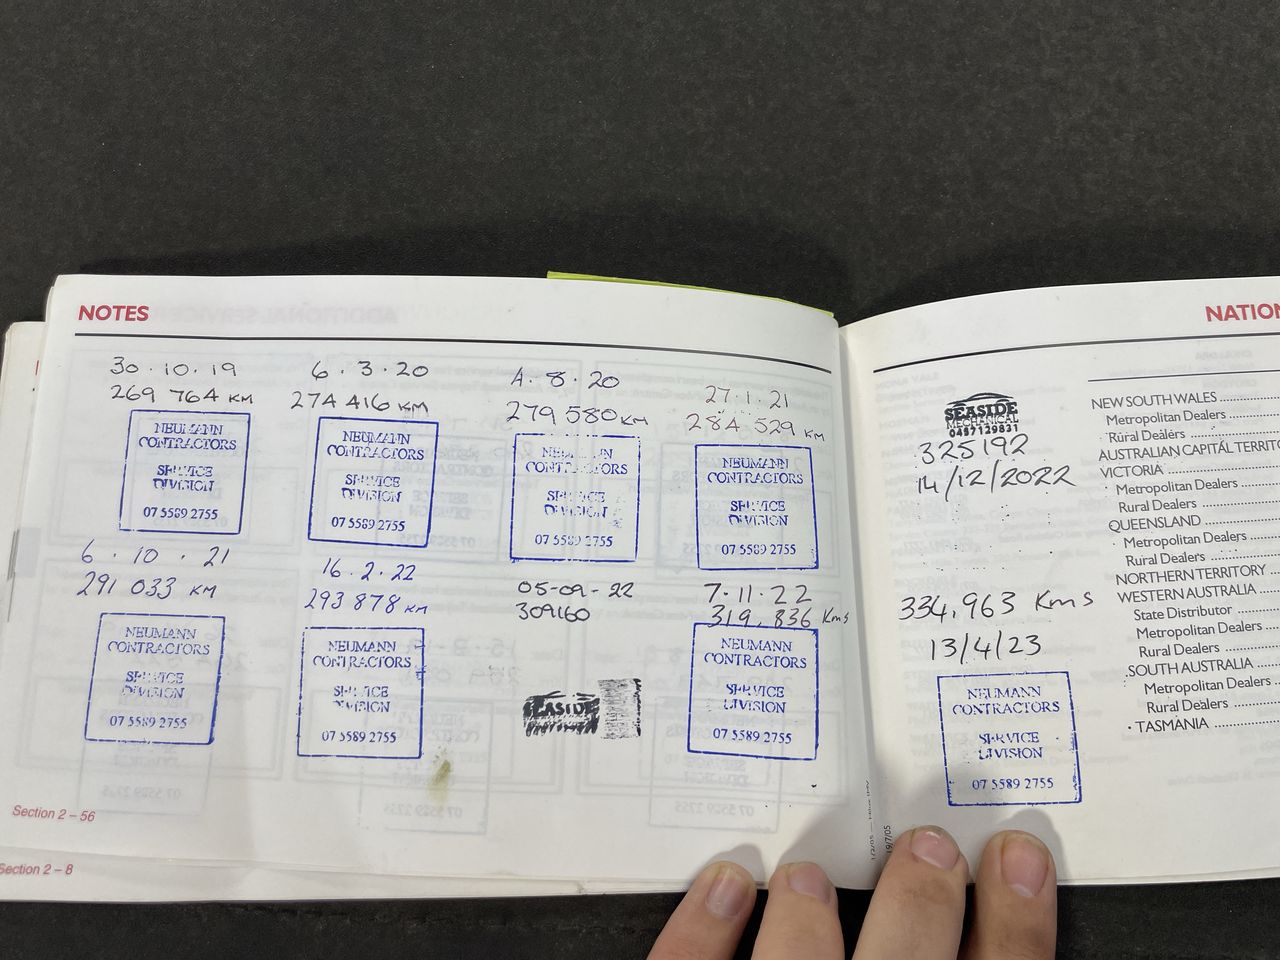 NOTES
30·10·19
269 764 KM
NEUMANN
CONTRACTORS
SERVICE
DIVISION
07 5589 2755
6·3·20
274 416 KM
NEUMANN
CONTRACTORS
SERVICE
DIVISION
07 5589 2755
4·8·20
279 580 KM
NEUMANN
CONTRACTORS
SERVICE
DIVISION
07 5589 2755
27·1·21
284 529 KM
NEUMANN
CONTRACTORS
SERVICE
DIVISION
07 5589 2755
6·10·21
291 033 KM
NEUMANN
CONTRACTORS
SERVICE
DIVISION
07 5589 2755
16·2·22
293 878 KM
NEUMANN
CONTRACTORS
SERVICE
DIVISION
07 5589 2755
05-09-22
309160
SEASIDE
7·11·22
319,836 Kms
NEUMANN
CONTRACTORS
SERVICE
DIVISION
07 5589 2755
Section 2 – 56
Section 2 – 8
NATION
SEASIDE
MECHANICAL
0487129831
325192
14/12/2022
334,963 Kms
13/4/23
NEUMANN
CONTRACTORS
SERVICE
DIVISION
07 5589 2755
NEW SOUTH WALES
Metropolitan Dealers
Rural Dealers
AUSTRALIAN CAPITAL TERRITO
VICTORIA
Metropolitan Dealers
Rural Dealers
QUEENSLAND
Metropolitan Dealers
Rural Dealers
NORTHERN TERRITORY
WESTERN AUSTRALIA
State Distributor
Metropolitan Dealers
Rural Dealers
SOUTH AUSTRALIA
Metropolitan Dealers
Rural Dealers
TASMANIA
19/7/05